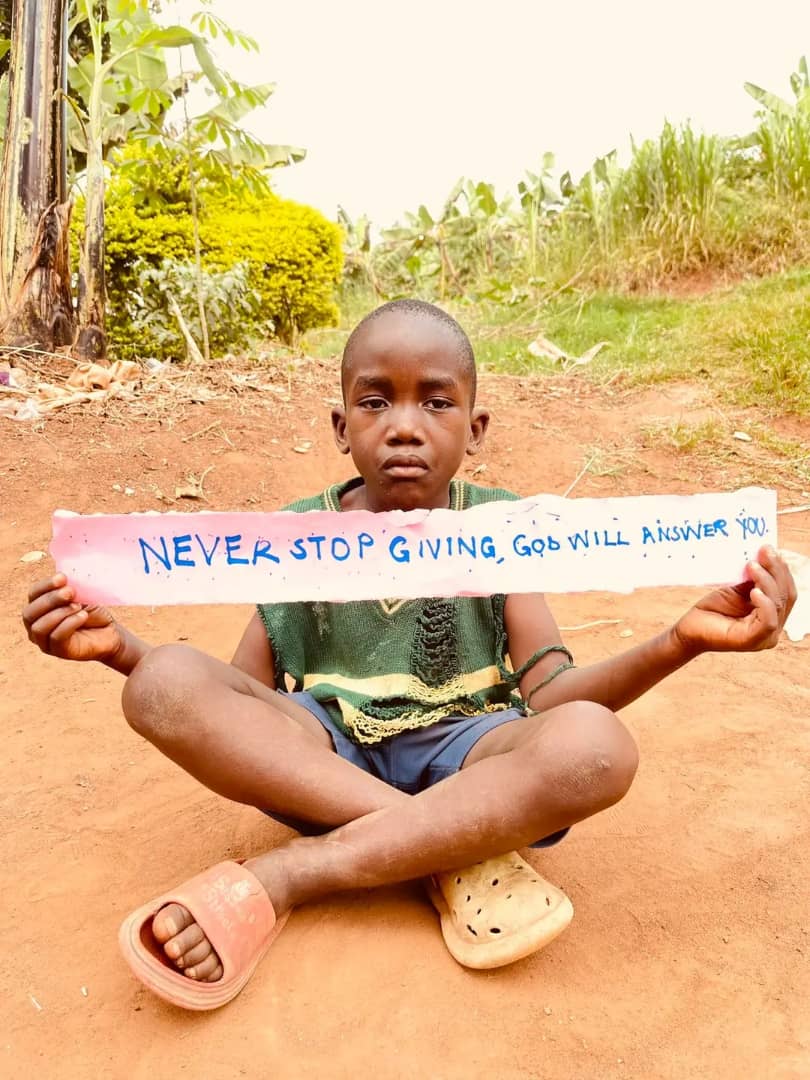 NEVER STOP GIVING, GOD WILL ANSWER YOU.